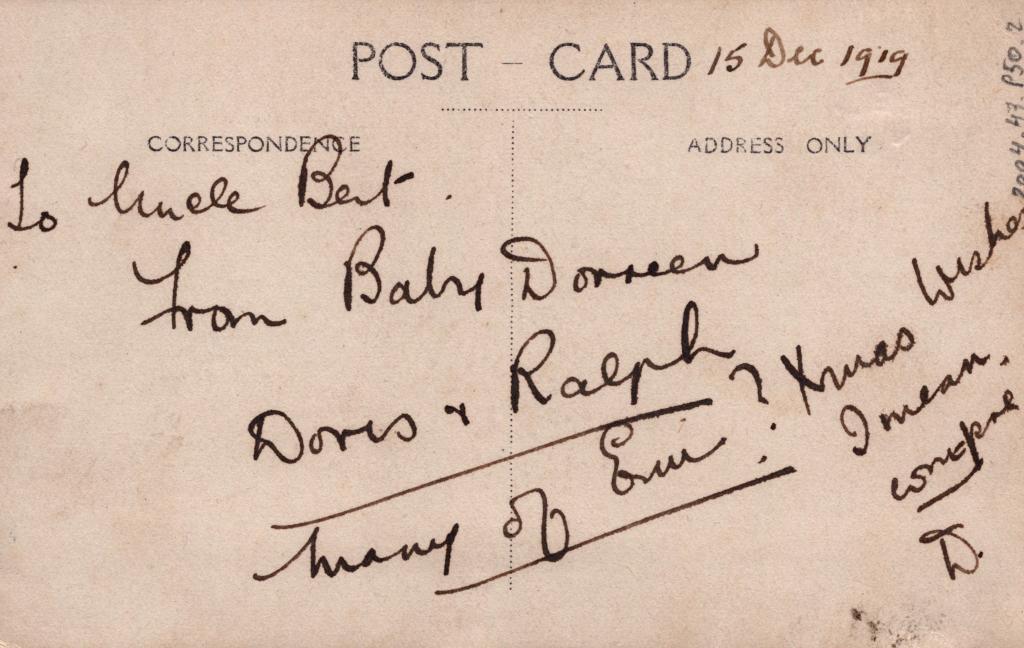 POST - CARD 15 Dec 1919
CORRESPONDENCE
ADDRESS ONLY
To Uncle Bert.
From Baby Dorreen
Doris & Ralph
many of Em ?
Xmas Wishes
I mean.
compre
D.
2004.47.P50.2